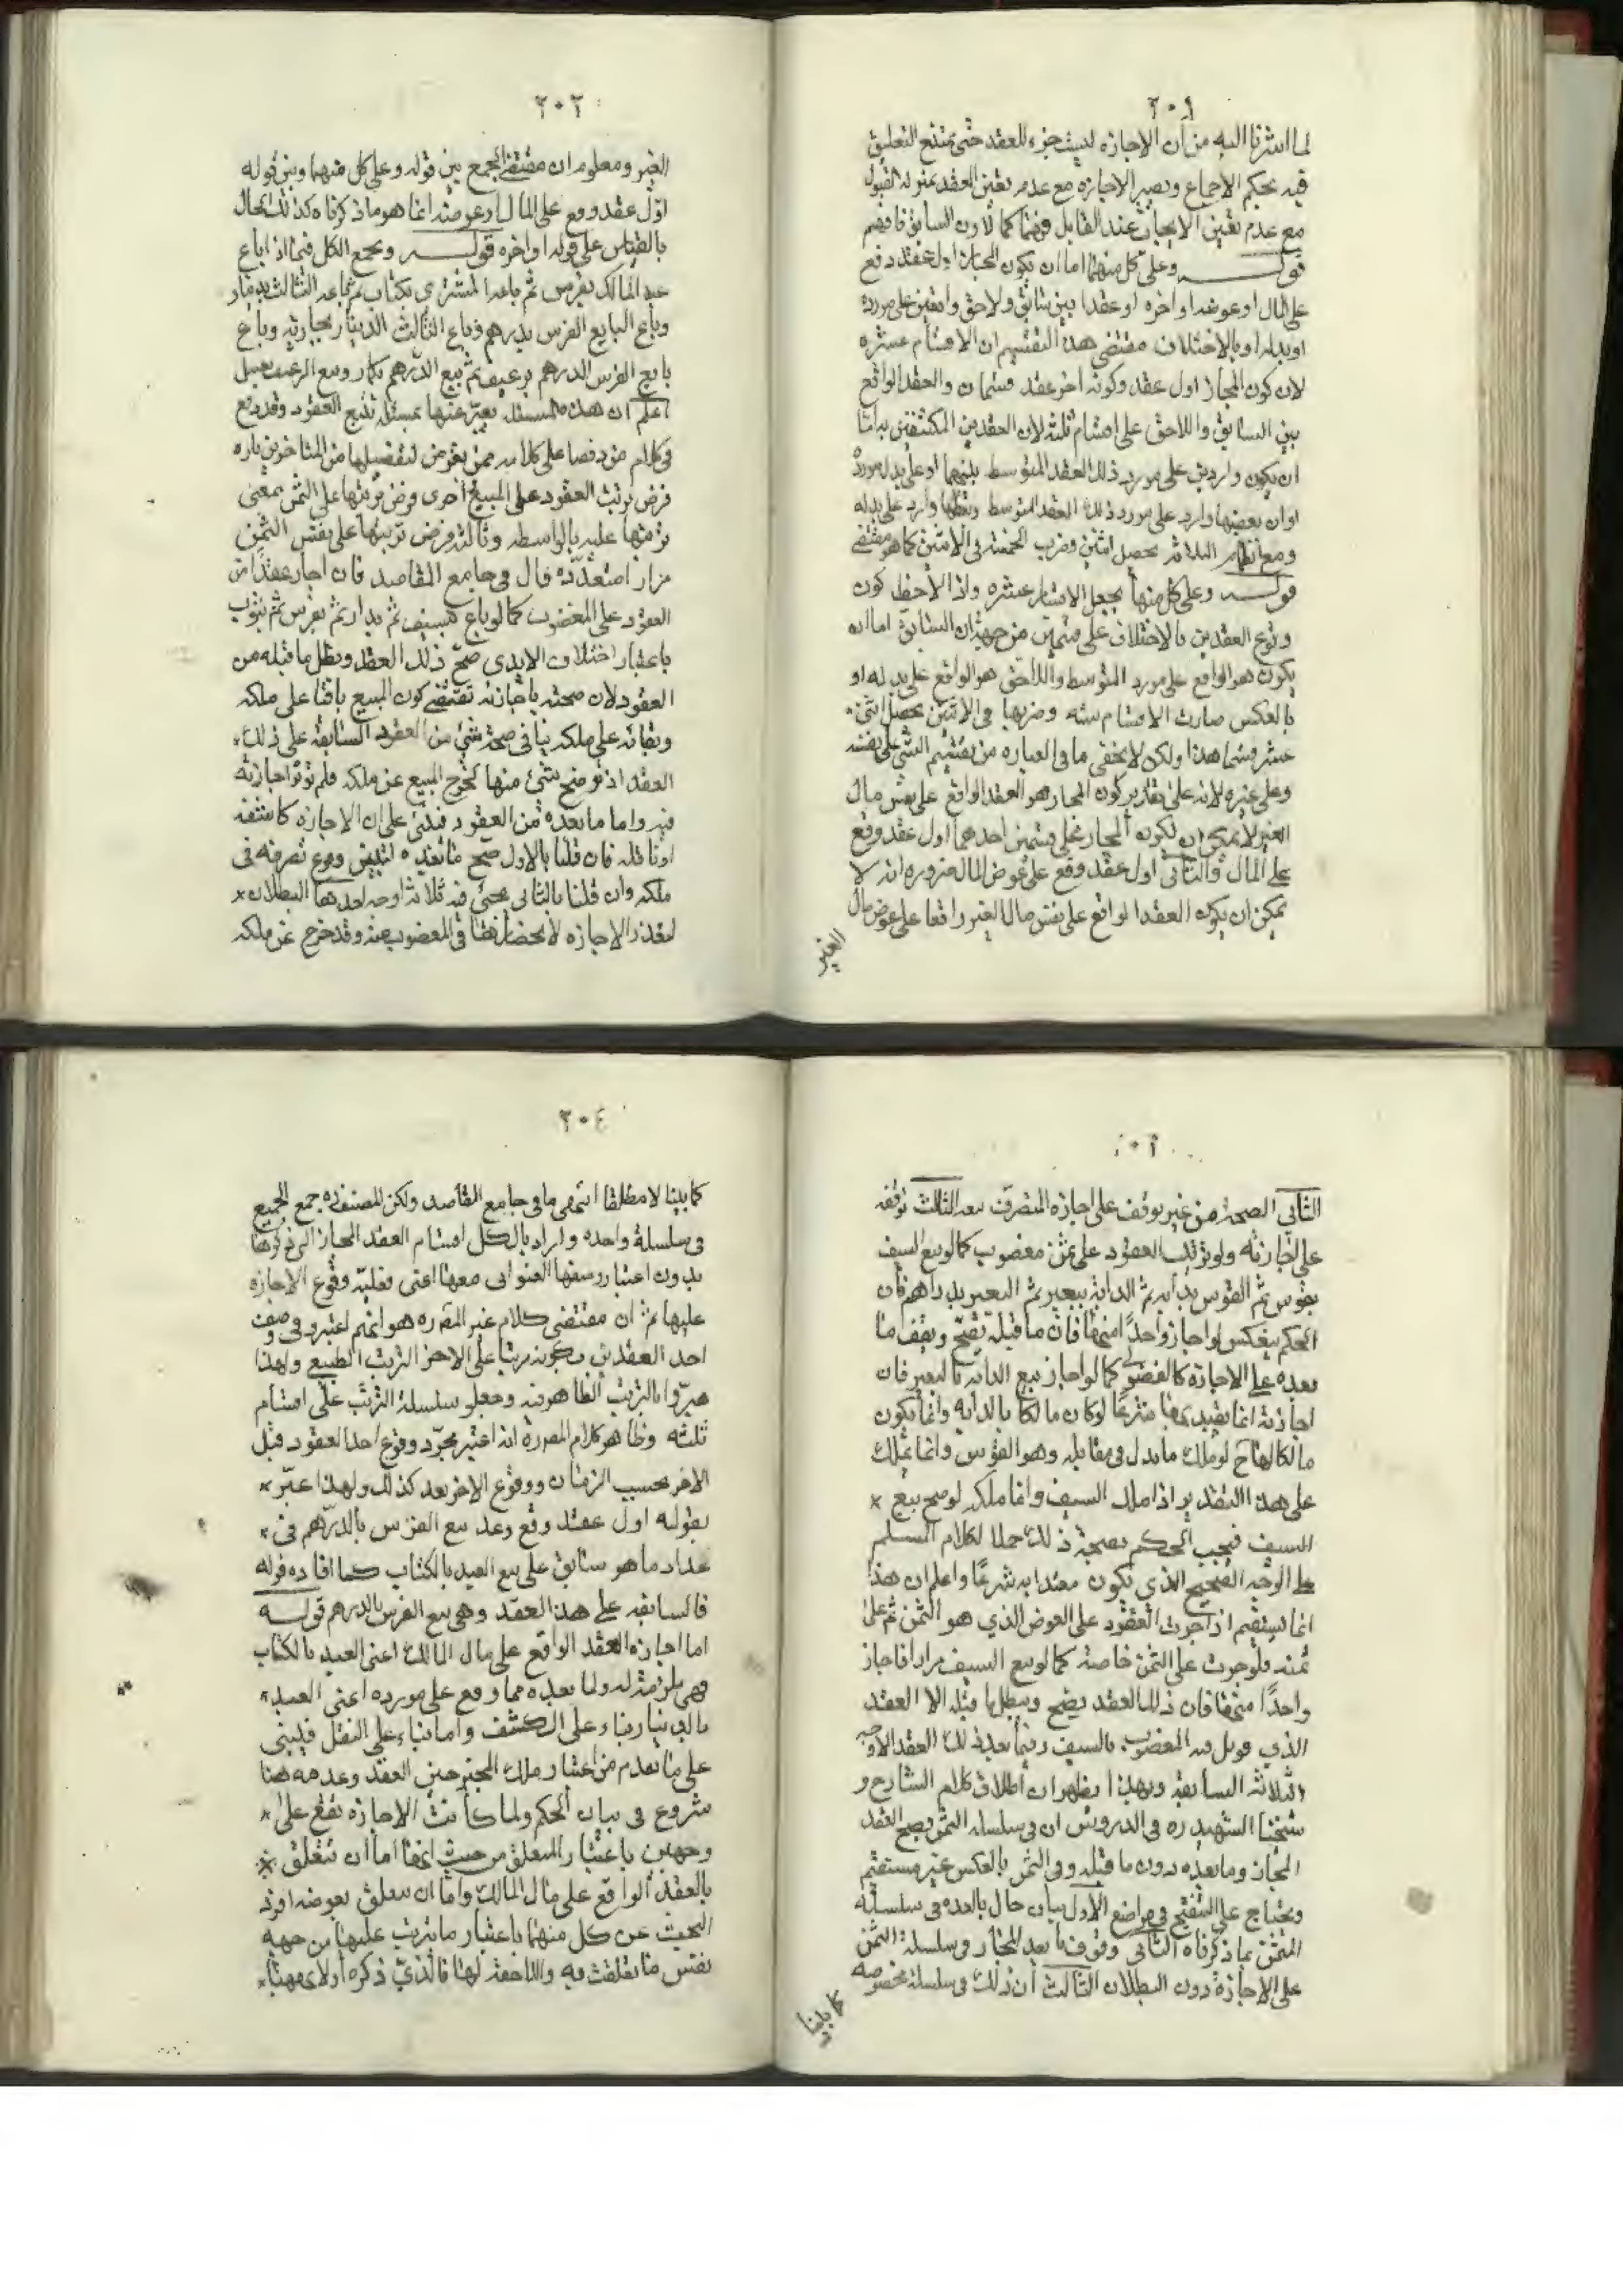 ٢٠١
لما اشرنا اليه من ان الاجازه ليست جزء للعقد حتى يمتنع التعليق
فيه بحكم الاجماع ويصير الاجازه مع عدم تعين العقد بمنزله القبول
مع عدم تعيين الايجاب عند القابل وهنا كما لاذن السابق فافهم
قوله وعلى كل منهما اما ان يكون المجاز اول عقد وقع
على المال او عوضه او اخره او عقدا بين سابق ولاحق واقعين على مورده
او بدله او بالاختلاف مقتضى هذا التقسيم ان الاقسام عشره
لان كون المجاز اول عقد وكونه اخر عقد قسمان والعقد الواقع
بين السابق واللاحق على اقسام ثلثه لان العقدين المكتنفين به اما
ان يكون واردين على مورد ذلك العقد المتوسط بينهما او على بدل مورده
او ان بعضها وارد على مورد ذلك العقد المتوسط وبعضها وارد على بدله
ومع الثلاثه يحصل اثنين وضرب الخمسه فى الاثنين كما هو مقتضى
قوله وعلى كل منها يجعل الاقسام عشره واذا لاحظ كون
وقوع العقدين بالاختلاف على قسمين من جهة ان السابق اما ان
يكون هو الواقع على مورد المتوسط واللاحق هو الواقع على بدله او
بالعكس صارت الاقسام سته وضربها فى الاثنين يحصل اثنى
عشر قسما هذا ولكن لا يخفى ما فى العباره من تقسيم الشئ على نفسه
وعلى غيره لانه على تقدير كون المجاز هو العقد الواقع على نفس مال
الغير لا يمكن ان يكون المجاز على قسمين احدهما اول عقد وقع
على المال والثانى اول عقد وقع على عوض المال ضروره انه لا
يمكن ان يكون العقد الواقع على نفس مال الغير واقعا على عوض مال
الغير
٢٠٢
الغير ومعلوم ان مقتضى الجمع بين قوله وعلى كل منهما وبين قوله
اول عقد وقع على المال او عوضه انما هو ما ذكرناه كذلك الحال
بالقياس على قوله او اخره قوله ويجمع الكل فيما اذا باع
عبد المالك بفرس ثم باعه المشترى بكتاب ثم باعه الثالث بدينار
وباع البايع الفرس بدرهم وباع الثالث الدينار بجاريه وباع
بايع الفرس الدرهم برغيف ثم بيع الدرهم بحمار وبيع الرغيف بعسل
اعلم ان هذه المسئله يعبر عنها بمسئله تتبع العقود وقد وقع
فى كلام من وقفنا على كلامه ممن تعرض لتفصيلها من المتاخرين تاره
فرض ترتب العقود على المبيع اخرى وفرض ترتبها على الثمن بمعنى
ترتبها عليه بالواسطه وثالثه فرض ترتبها على نفس الثمن
مرارا متعدده قال فى جامع المقاصد فان اجاز عقدا من
العقود على المغصوب كما لو باع بسيف ثم بدار ثم بفرس ثم بثوب
باعتبار اختلاف الايدى صح ذلك العقد وبطل ما قبله من
العقود لان صحته باجازته تقتضى كون المبيع باقيا على ملكه
وبقائه على ملكه ينافى صحة شئ من العقود السابقه على ذلك
العقد اذ لو صح شئ منها لخرج المبيع عن ملكه فلم تؤثر اجازته
فيه واما ما بعده من العقود فيبنى على ان الاجازه كاشفه
او ناقله فان قلنا بالاول صح ما بعده لتبين وقوع تصرفه فى
ملكه وان قلنا بالثانى يجئ فيه ثلاثه اوجه احدها البطلان
لتعذر الاجازه لانحصارها فى المغصوب منه وقد خرج عن ملكه
الثانى الصحة من غير توقف على اجازة المتصرف بعد الثالث توقفه
على اجازته ولو ترتبت العقود على ثمن مغصوب كما لو بيع السيف
بقوس ثم القوس بدابه ثم الدابه ببعير ثم البعير بدراهم فان
الحكم ينعكس لو اجاز واحدا منها فان ما قبله يصح ويقف ما
بعده على الاجازة كالفضولى كما لو اجاز بيع الدابه بالبعير فان
اجازته انما يفيد بها شرعا لو كان مالكا بالدابه وانما يكون
مالكا لها ح لو ملك ما بدل فى مقابله وهو القوس وانما يملك
على هذا التقدير اذا ملك السيف وانما ملكه لو صح بيع
السيف فيجب الحكم بصحة ذلك حملا لكلام المسلم
على الوجه الصحيح الذي يكون معتدا به شرعا واعلم ان هذا
انما يستقيم اذا جرت العقود على العوض الذي هو الثمن ثم على
ثمنه فلو جرت على الثمن خاصة كما لو بيع السيف مرارا فاجاز
واحدا منها فان ذلك العقد يصح ويبطل ما قبله الا العقد
الذي قوبل فيه المغصوب بالسيف وفيما بعد ذلك العقد الاوجه
الثلاثه السابقه وبهذا يظهر ان اطلاق كلام الشارح و
شيخنا الشهيد ره فى الدروس ان فى سلسله الثمن يصح العقد
المجاز وما بعده دون ما قبله وفى الثمن بالعكس غير مستقيم
ويحتاج على التنقيح فى مواضع الاول بيان حال ما بعده فى سلسله
المثمن بما ذكرناه الثانى وقوف ما بعد المجاز فى سلسلة الثمن
على الاجازة دون البطلان الثالث ان ذلك فى سلسله مخصوصه
كما بينا
٢٠٤
كما بينا لا مطلقا انتهى ما فى جامع المقاصد ولكن المصنف ره جمع الجميع
فى سلسلة واحده واراد بالكل اقسام العقد المجاز التى ذكرها
بدون اعتبار وصفها العنوانى معها اعنى فعليه وقوع الاجازه
عليها ثم ان مقتضى كلام غير المصره هو انهم اعتبروا فى وصف
احد العقدين بكونه مرتبا على الاخر الترتب الطبيعى ولهذا
عبروا بالترتب الظاهر فيه وجعلوا سلسلة الترتب على اقسام
ثلثه وظاهر كلام المصره انه اعتبر مجرد وقوع احد العقود قبل
الاخر بحسب الزمان ووقوع الاخر بعد كذلك ولهذا عبر
بقوله اول عقد وقع وعد بيع الفرس بالدرهم فى
عداد ما هو سابق على بيع العبد بالكتاب كما افاده قوله
فالسابقه على هذا العقد وهى بيع الفرس بالدرهم قوله
اما اجازة العقد الواقع على مال المالك اعنى العبد بالكتاب
فهى ملزمة له ولما بعده مما وقع على مورده اعنى العبد
بالدينار بناء على الكشف واما بناء على النقل فيبنى
على ما تقدم من اعتبار ملك المجيز حين العقد وعدمه هذا
شروع فى بيان الحكم ولما كانت الاجازه تقع على
وجهين باعتبار المتعلق من حيث انها اما ان تتعلق
بالعقد الواقع على مال المالك واما ان تتعلق بعوضه افرد
البحث عن كل منهما باعتبار ما يترتب عليها من جهه
نفس ما تعلقت به واللاحقه لها فالذى ذكره اولا ههنا